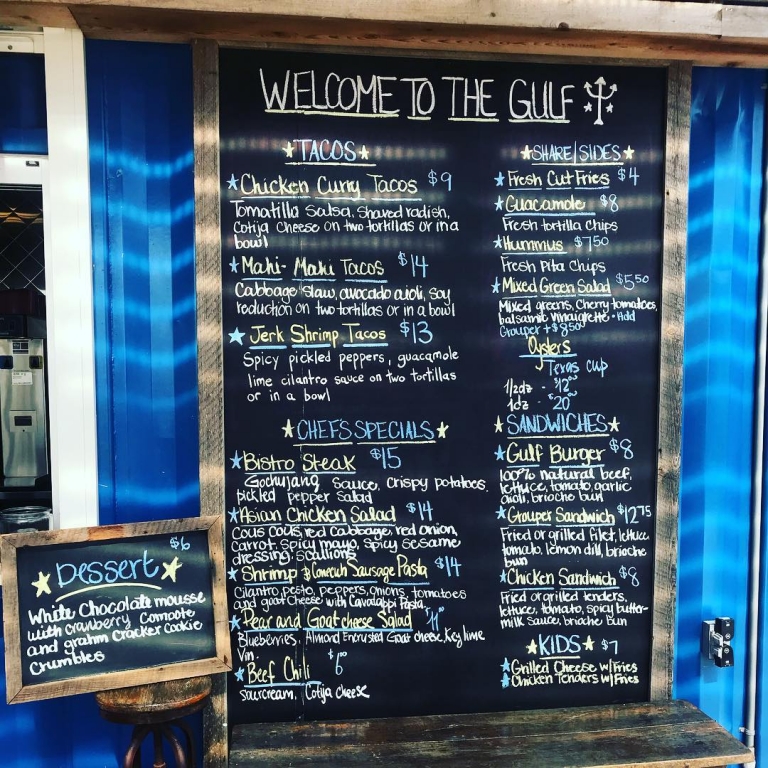 WELCOME TO THE GULF
TACOS
Chicken Curry Tacos $9
Tomatilla Salsa, Shaved radish,
Cotija Cheese on two tortillas or in a
bowl
Mahi-Mahi Tacos $14
Cabbage slaw, avocado aioli, soy
reduction on two tortillas or in a bowl
Jerk Shrimp Tacos $13
Spicy pickled peppers, guacamole
lime cilantro sauce on two tortillas
or in a bowl
CHEFS SPECIALS
Bistro Steak $15
Gochujang Sauce, Crispy potatoes,
pickled pepper salad
Asian Chicken Salad $14
Cous Cous, red cabbage, red onion,
carrot, spicy mayo, spicy sesame
dressing, scallions
Shrimp & Conecuh Sausage Pasta $14
Cilantro pesto, peppers, onions, tomatoes
and goat cheese with Cavatappi Pasta
Pear and Goat cheese Salad $11
Blueberries, Almond Encrusted Goat cheese, Key lime
Vin
Beef Chili $6
sourcream, Cotija Cheese
SHARE/SIDES
Fresh Cut Fries $4
Guacamole $8
Fresh tortilla Chips
Hummus $7.50
Fresh Pita Chips
Mixed Green Salad $5.50
Mixed greens, Cherry tomatoes,
balsamic vinaigrette • Add
Grouper + $8.50
Oysters
Texas cup
1/2dz - $12
1dz - $20
SANDWICHES
Gulf Burger $8
100% natural beef,
lettuce, tomato, garlic
aioli, brioche bun
Grouper Sandwich $12.75
Fried or grilled filet, lettuce
tomato, lemon dill, brioche
bun
Chicken Sandwich $8
Fried or grilled tenders,
lettuce, tomato, spicy butter-
milk sauce, brioche bun
KIDS $7
Grilled Cheese w/Fries
Chicken Tenders w/Fries
Dessert $6
White Chocolate mousse
with cranberry Compote
and grahm Cracker Cookie
Crumbles